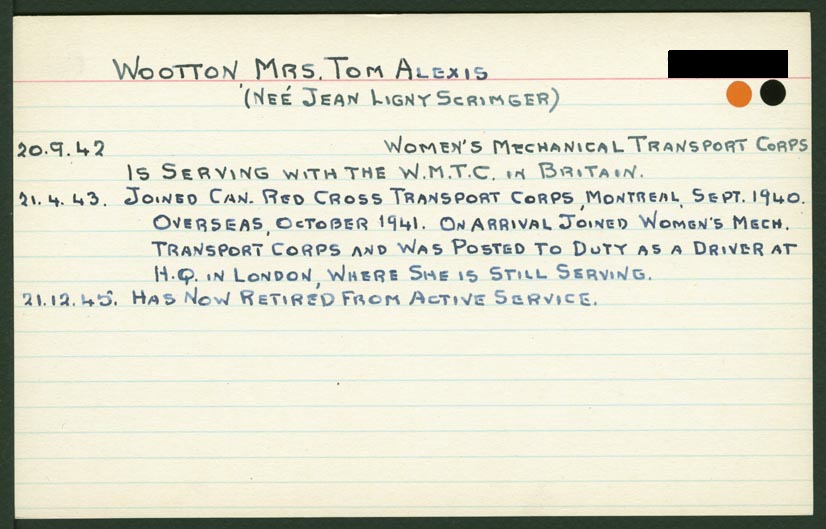 WOOTTON MRS. TOM ALEXIS
(NEÉ JEAN LIGNY SCRIMGER)
20.9.42 WOMEN'S MECHANICAL TRANSPORT CORPS
IS SERVING WITH THE W.M.T.C. IN BRITAIN.
21.4.43. JOINED CAN. RED CROSS TRANSPORT CORPS, MONTREAL, SEPT. 1940.
OVERSEAS, OCTOBER 1941. ON ARRIVAL JOINED WOMEN'S MECH.
TRANSPORT CORPS AND WAS POSTED TO DUTY AS A DRIVER AT
H.Q. IN LONDON, WHERE SHE IS STILL SERVING.
21.12.45. HAS NOW RETIRED FROM ACTIVE SERVICE.